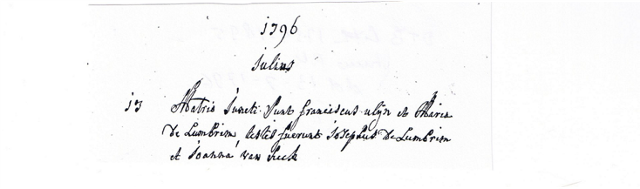 1796
Julius
13 Matrio Juncti Sunt franciscus uÿn et Maria
De Lumbrem testes fuerunt Josephus De Lumbrem
et Joanna van